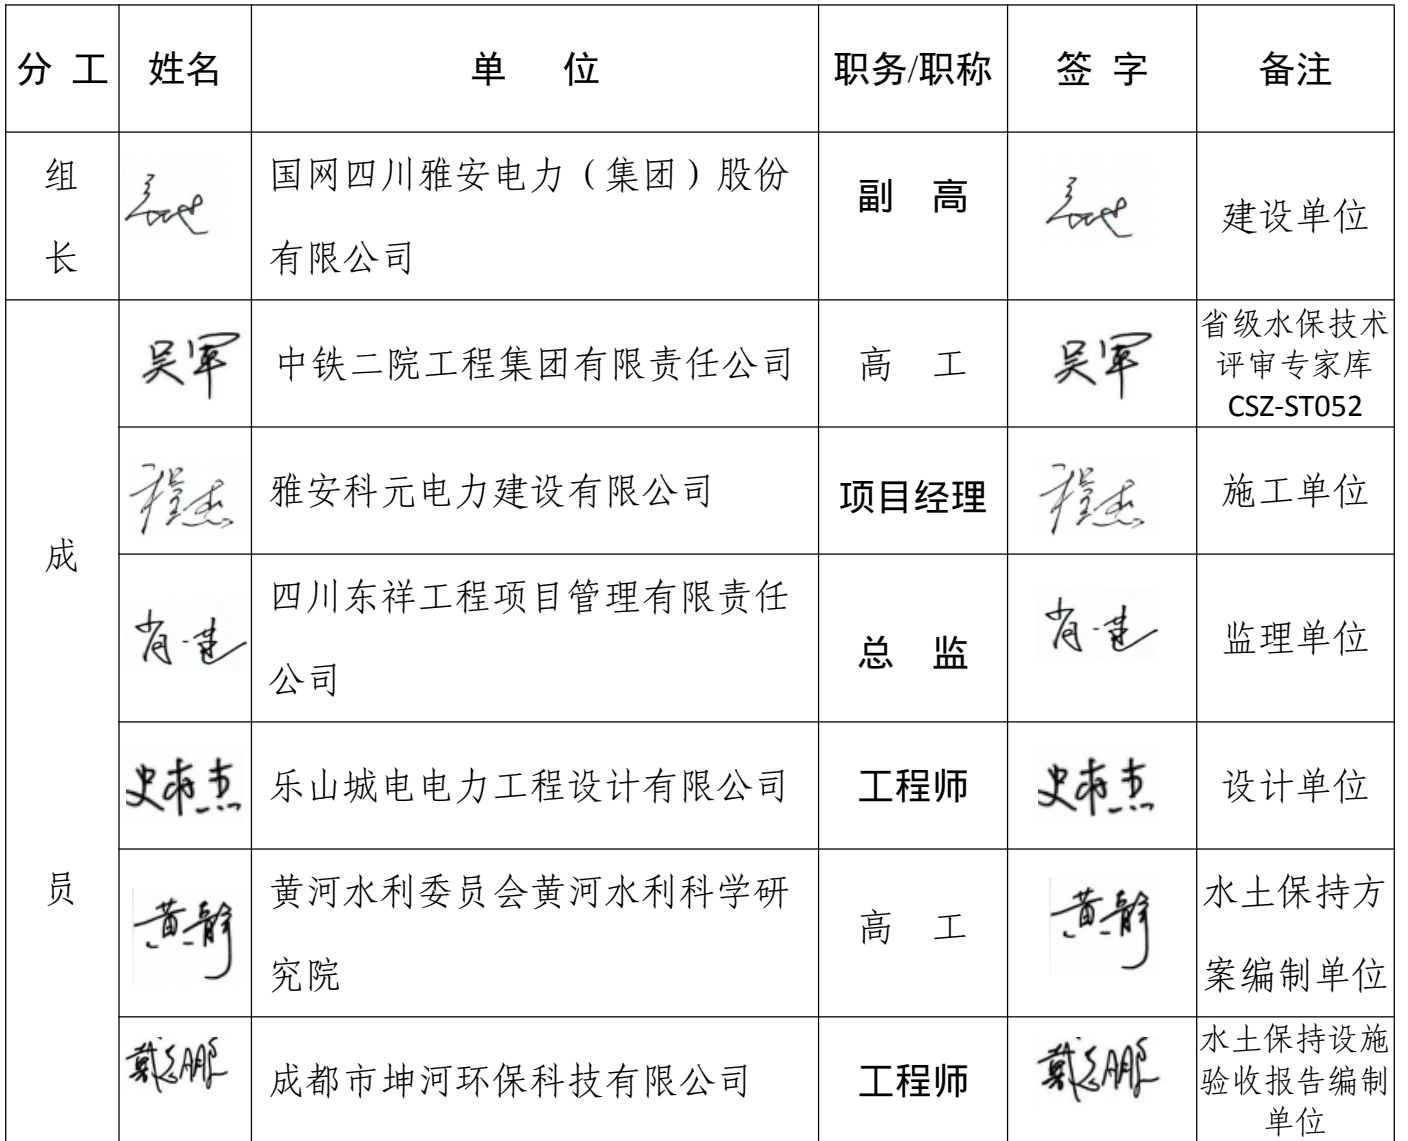 分 工 姓名 单 位 职务/职称 签 字 备注
组
长
国网四川雅安电力（集团）股份
有限公司
副 高
建设单位
成
员
吴军
中铁二院工程集团有限责任公司
高 工
吴军
省级水保技术
评审专家库
CSZ-ST052
程杰
雅安科元电力建设有限公司
项目经理
程杰
施工单位
肖一建
四川东祥工程项目管理有限责任
公司
总 监
肖一建
监理单位
乐山城电电力工程设计有限公司
工程师
设计单位
黄静
黄河水利委员会黄河水利科学研
究院
高 工
黄静
水土保持方
案编制单位
戴志鹏
成都市坤河环保科技有限公司
工程师
戴志鹏
水土保持设施
验收报告编制
单位